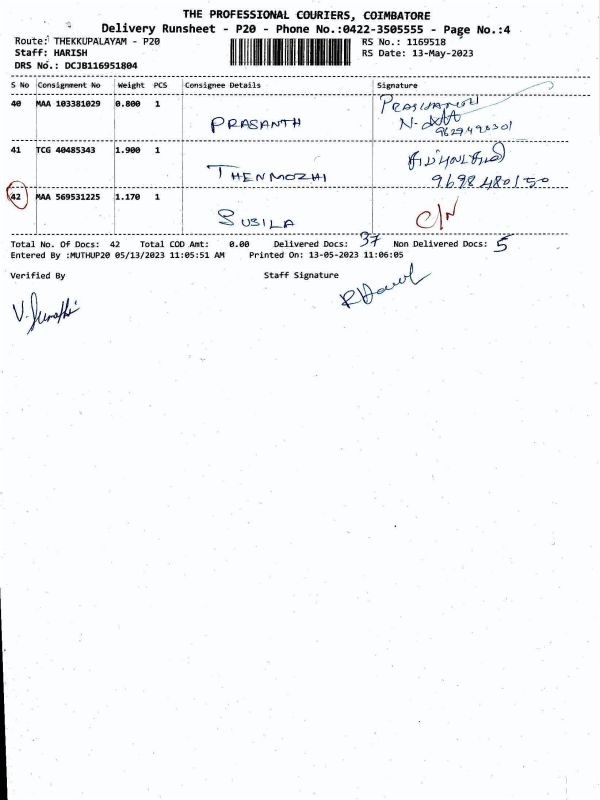 THE PROFESSIONAL COURIERS, COIMBATORE
Delivery Runsheet - P20 - Phone No.:0422-3505555 - Page No.:4
Route: THEKKUPALAYAM - P20 RS No.: 1169518
Staff: HARISH RS Date: 13-May-2023
DRS No.: DCJB116951804
S No Consignment No Weight PCS Consignee Details Signature
40 MAA 103381029 0.800 1 PRASANTH
41 TCG 40485343 1.900 1 THENMOZHI 9698480150
42 MAA 569531225 1.170 1 SUBILA C/N
Total No. Of Docs: 42 Total COD Amt: 0.00 Delivered Docs: 37 Non Delivered Docs: 5
Entered By :MUTHUP20 05/13/2023 11:05:51 AM Printed On: 13-05-2023 11:06:05
Verified By Staff Signature